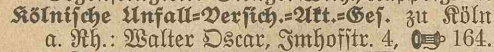 Kölnische Unfall=Versich.=Akt.=Ges. zu Köln
a. Rh.: Walter Oscar, Imhofstr. 4, 164.